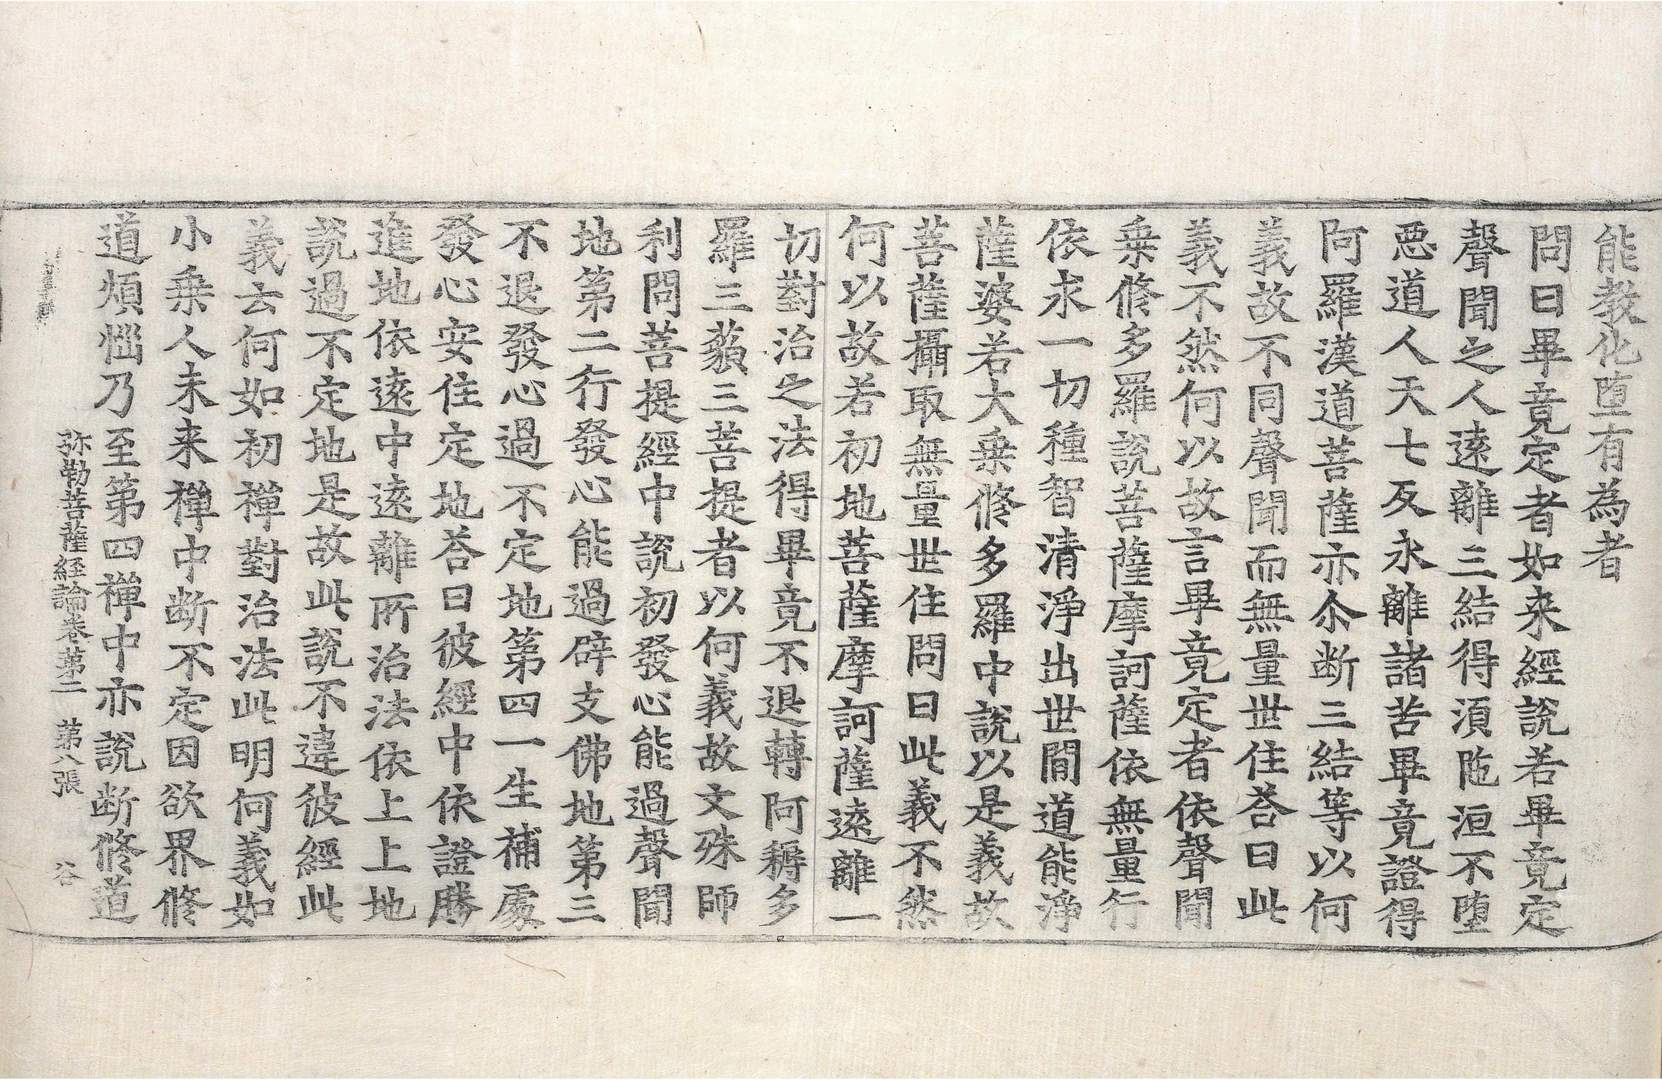 能教化堕有為者
問曰畢竟定者如来經說若畢竟定
聲聞之人遠離三結得湏陁洹不堕
惡道人天七反永離諸苦畢竟證得
阿羅漢道菩薩亦尒断三結等以何
義故不同聲聞而無量世住荅曰此
義不然何以故言畢竟定者依聲聞
乗修多羅說菩薩摩訶薩依無量行
依求一切種智清淨出世間道能淨
薩婆若大乗修多羅中說以是義故
菩薩攝取無量世住問曰此義不然
何以故若初地菩薩摩訶薩遠離一
切對治之法得畢竟不退轉阿耨多
羅三藐三菩提者以何義故文殊師
利問菩提經中說初發心能過聲聞
地第二行發心能過辟支佛地第三
不退發心過不定地第四一生補處
發心安住定地荅曰彼經中依證勝
進地依遠中遠離所治法依上上地
說過不定地是故此說不違彼經此
義云何如初禪對治法此明何義如
小乗人未来禪中断不定因欲界修
道煩惱乃至第四禪中亦說断修道
弥勒菩薩経論卷苐二　苐八張　谷